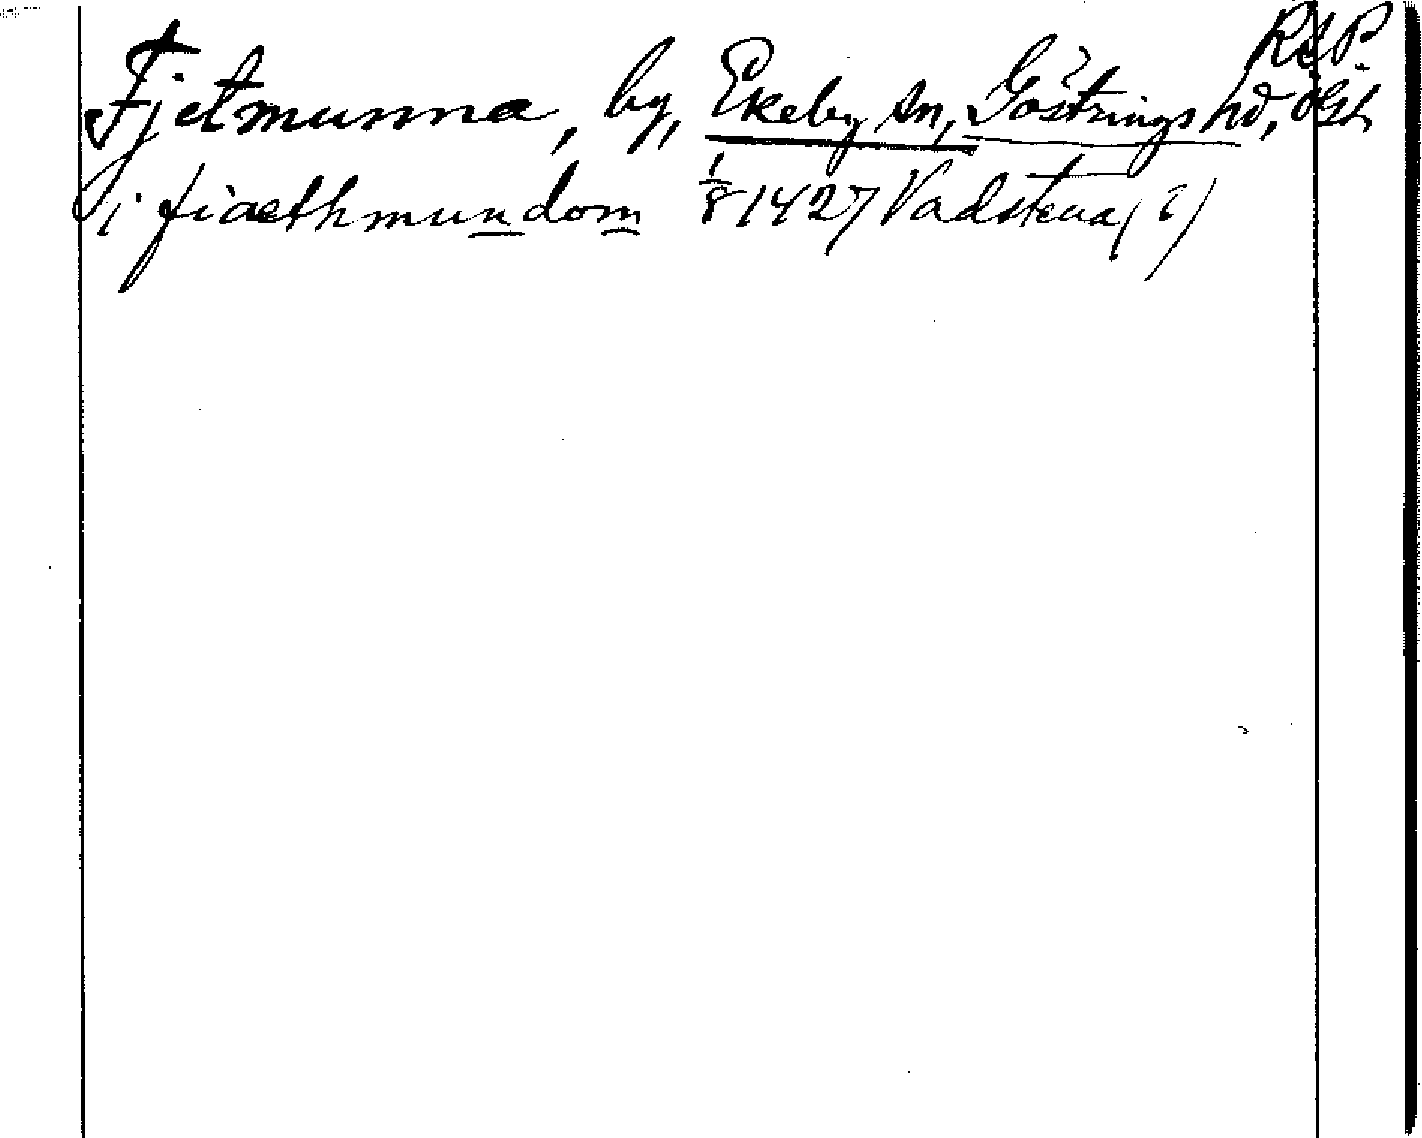 RAP.
Fjetmunna, by, Ekeby sn, Göstrings hd, Ögl.
i fiaethmundom 1/8 1427 Vadstena (?)